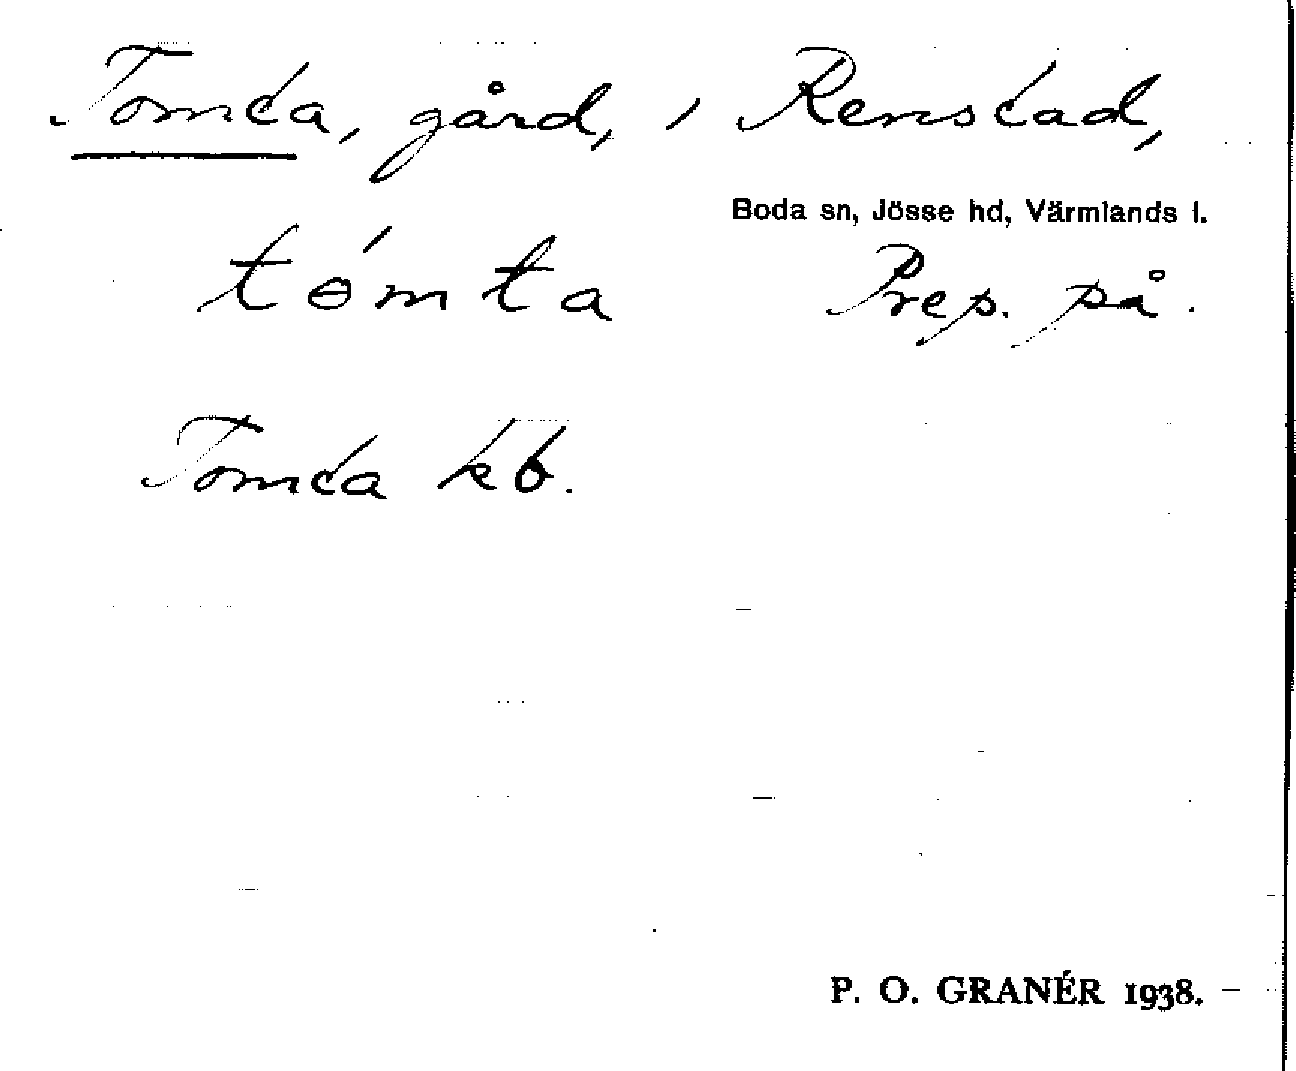 Tomta, gård, i Renstad,
Boda sn, Jösse hd, Värmlands l.
tɵ́mta Prep. på.
Tomta kb.
P. O. GRANÉR 1938.